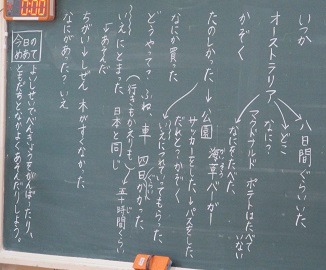 いつか
八日間ぐらいいた
オーストラリア
どこ
なに?
かぞく
マクドナルド ポテトはたべていない
なにをたべた
たのしかった
公園 海 ハンバーガー
サッカーをした。パスをした
だれと? かぞく
なにか買った いえにつれていってもらった。
どうやって? ふね、車 四日かかった
(行きもかえりも) 五十時間ぐらい
いえにとまった 日本と同じ
あそんだ
ちがい しぜん 木がすくなかった
なにがあった? いえ
今日のめあて
よいしせいでべんきょうをがんばったり、
ともだちとなかよくあそんだりしよう。
0:00